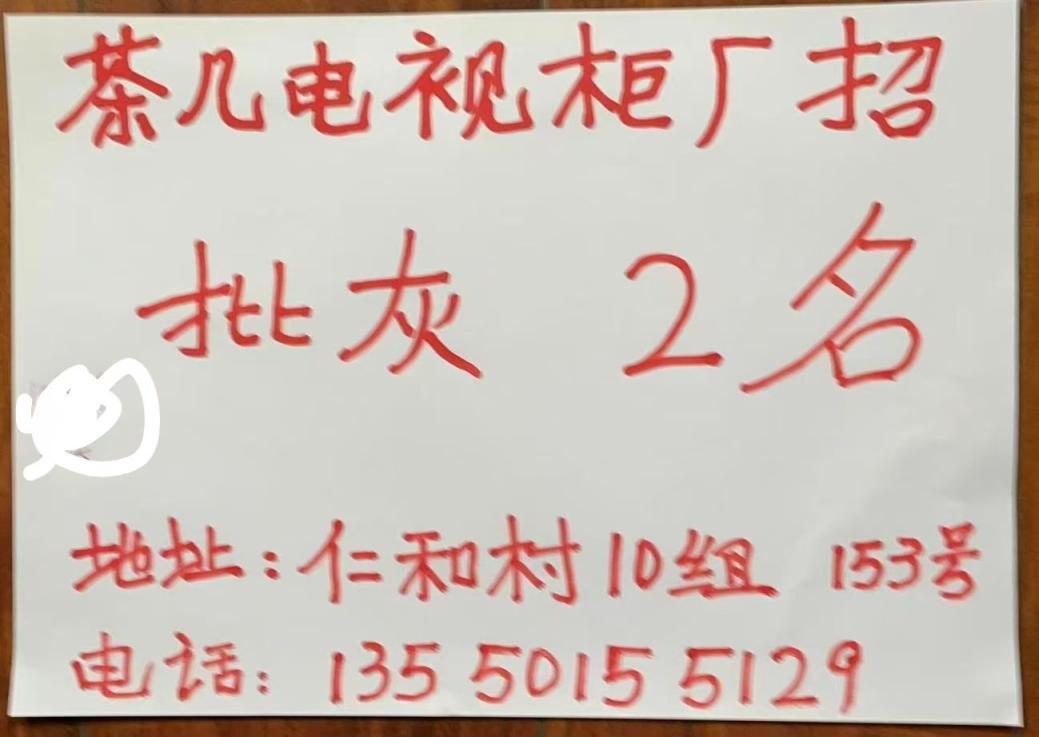 茶几电视柜厂招
批灰 2名
地址：仁和村10组 153号
电话：135 5015 5129